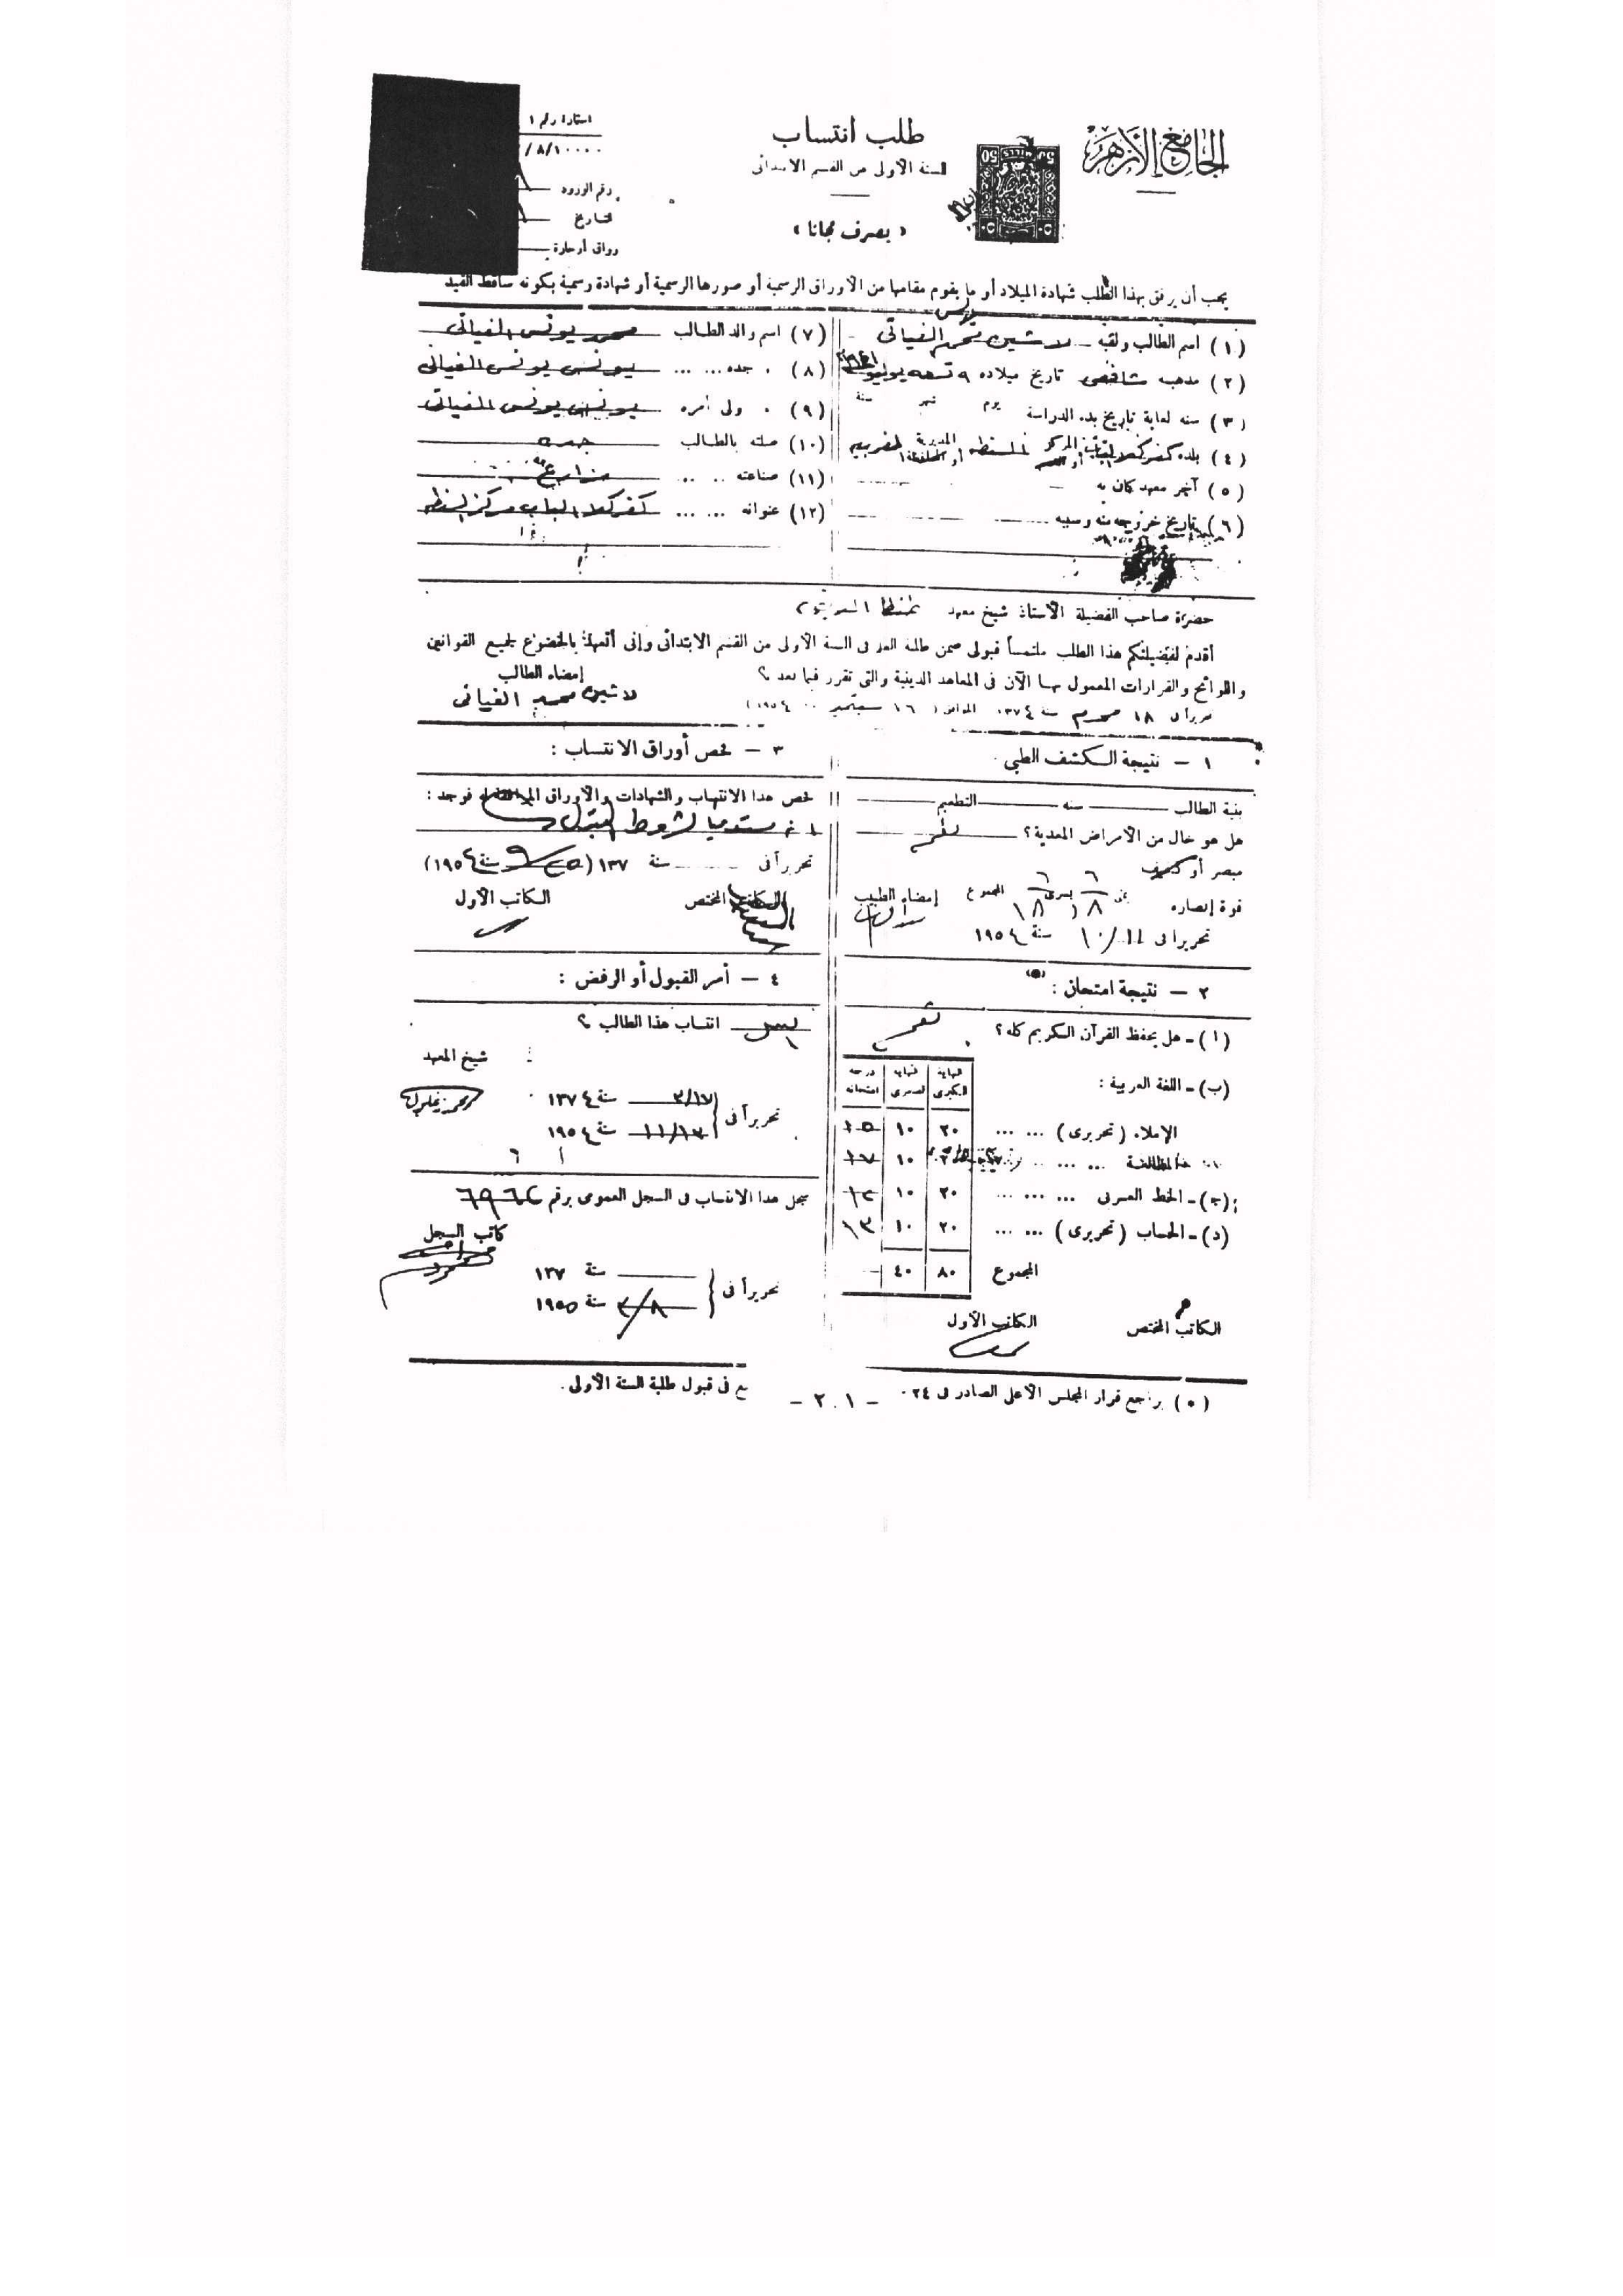 الجامع الأزهر
طلب انتساب
للسنة الأولى من القسم الابتدائى
« يصرف مجانا »
استمارة رقم ١
/٨/١٠٠٠٠
رقم الورود
التاريخ
رواق أو حارة
يجب أن يرفق بهذا الطلب شهادة الميلاد أو ما يقوم مقامها من الأوراق الرسمية أو صورها الرسمية أو شهادة رسمية بكونه ساقط القيد
(١) اسم الطالب ولقبه لاشين محمد يونس الغياتى
(٢) مذهبه شافعى تاريخ ميلاده ٩ تسعه يوليو
(٣) سنه لغاية تاريخ بدء الدراسة يوم شهر سنة
(٤) بلده كفر كلا الباب المركز السنطه المديرية أو المحافظة الغربيه
(٥) آخر معهد كان به
(٦) تاريخ خروجه منه وسببه
(٧) اسم والد الطالب محمد يونس الغياتى
(٨) » جده ... ... يونس يونس الغياتى
(٩) » ولى أمره يونس يونس الغياتى
(١٠) صلته بالطالب جده
(١١) صناعته .. ... مزارع
(١٢) عنوانه ... ... كفر كلا الباب مركز السنطه
حضرة صاحب الفضيلة الأستاذ شيخ معهد طنطا
أقدم لفضيلتكم هذا الطلب ملتمساً قبولى ضمن طلبة المعهد فى السنة الأولى من القسم الابتدائى وإنى أتعهد بالخضوع لجميع القوانين
واللوائح والقرارات المعمول بها الآن فى المعاهد الدينية والتى تقرر فيما بعد ؟
إمضاء الطالب
لاشين محمد الغياتى
تحريراً فى ١٨ محرم سنة ١٣٧٤ الموافق ( ١٦ سبتمبر ١٩٥٤ )
١ — نتيجة الكشف الطبى
بنية الطالب سنه التطعيم
هل هو خال من الأمراض المعدية ؟ نعم
مبصر أو كفيف
قوة إبصاره يمنى ٦/١٨ يسرى ٦/١٨ المجموع إمضاء الطبيب
تحريراً فى ١٠/١١ سنة ١٩٥٤
٢ — نتيجة امتحان : (*)
(١) - هل يحفظ القرآن الكريم كله ؟ نعم
(ب) - اللغة العربية :
النهاية الكبرى النهاية الصغرى درجة امتحانه
الإملاء (تحريرى) ... ... ٢٠ ١٠ ١٥
المطالعة ... ... ١٠ ١٧
(ج) - الخط العربى ... ... ... ٢٠ ١٠ ١٢
(د) - الحساب (تحريرى) ... ... ٢٠ ١٠ ١٣
المجموع ٨٠ ٤٠
الكاتب المختص الكاتب الأول
٣ — فحص أوراق الانتساب :
فحص هذا الانتساب والشهادات والأوراق المرافقة له فوجد :
مستوفيا لشروط القبول
تحريراً فى سنة ١٣٧ (٢٥/٩ سنة ١٩٥٤)
الكاتب المختص الكاتب الأول
٤ — أمر القبول أو الرفض :
يقبل انتساب هذا الطالب ؟
شيخ المعهد
تحريراً فى ٣/١٧ سنة ١٣٧٤
١١/١٣ سنة ١٩٥٤
سجل هذا الانتساب فى السجل العمومى برقم ٦٩٦٢
كاتب السجل
تحريراً فى سنة ١٣٧
٢/٨ سنة ١٩٥٥
(*) يراجع قرار المجلس الأعلى الصادر فى ٢٤
ع فى قبول طلبة السنة الأولى .
- ٢٠١ -